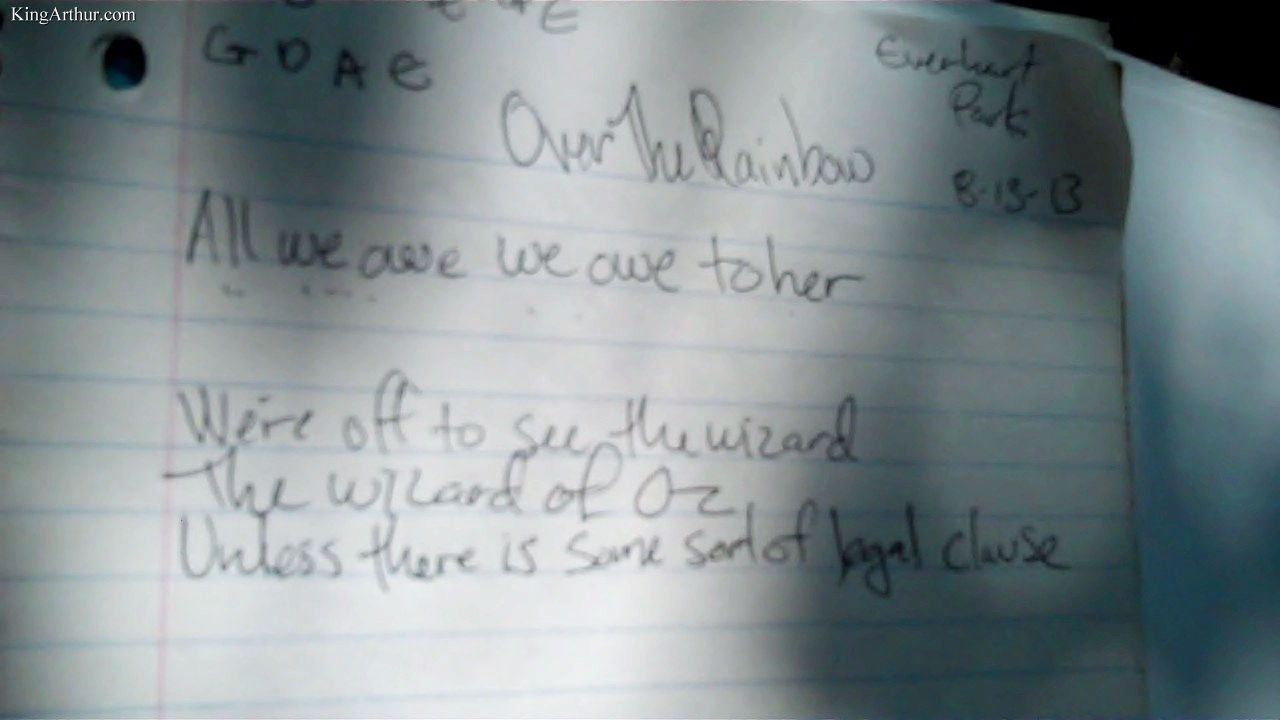 KingArthur.com
E
G D A E
Everhart
Park
Over The Rainbow
8-13-13
All we awe we owe to her
We're off to see the wizard
The wizard of Oz
Unless there is some sort of legal clause